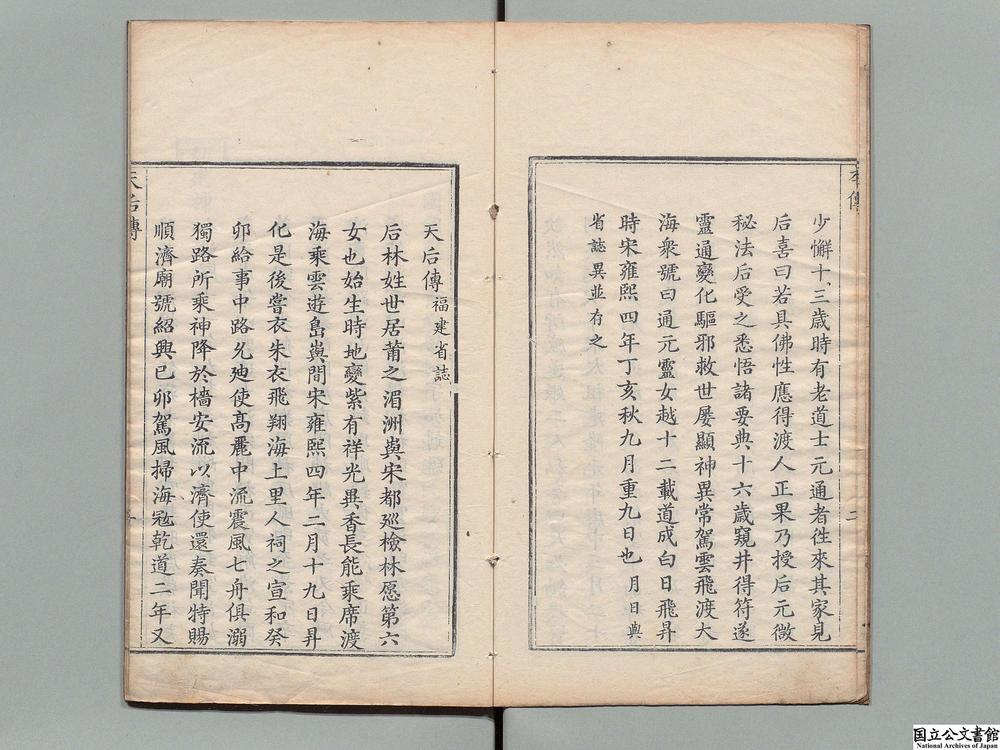 少懈十三歲時有老道士元通者往來其家見
后喜曰若具佛性應得渡人正果乃授后元微
秘法后受之悉悟諸要典十六歲窺井得符遂
靈通變化驅邪救世屡顯神異常駕雲飛渡大
海衆號曰通元靈女越十二載道成白日飛昇
時宋雍熙四年丁亥秋九月重九日也月日與
省誌異並存之
本傳
二
天后傳福建省誌
后林姓世居莆之湄洲嶼宋都巡檢林愿第六
女也始生時地變紫有祥光異香長能乘席渡
海乘雲遊島嶼間宋雍熙四年二月十九日昇
化是後嘗衣朱衣飛翔海上里人祠之宣和癸
卯給事中路允廸使高麗中流震風七舟俱溺
獨路所乘神降於檣安流以濟使還奏聞特賜
順濟廟號紹興己卯駕風掃海寇乾道二年又
天后傳
国立公文書館
National Archives of Japan